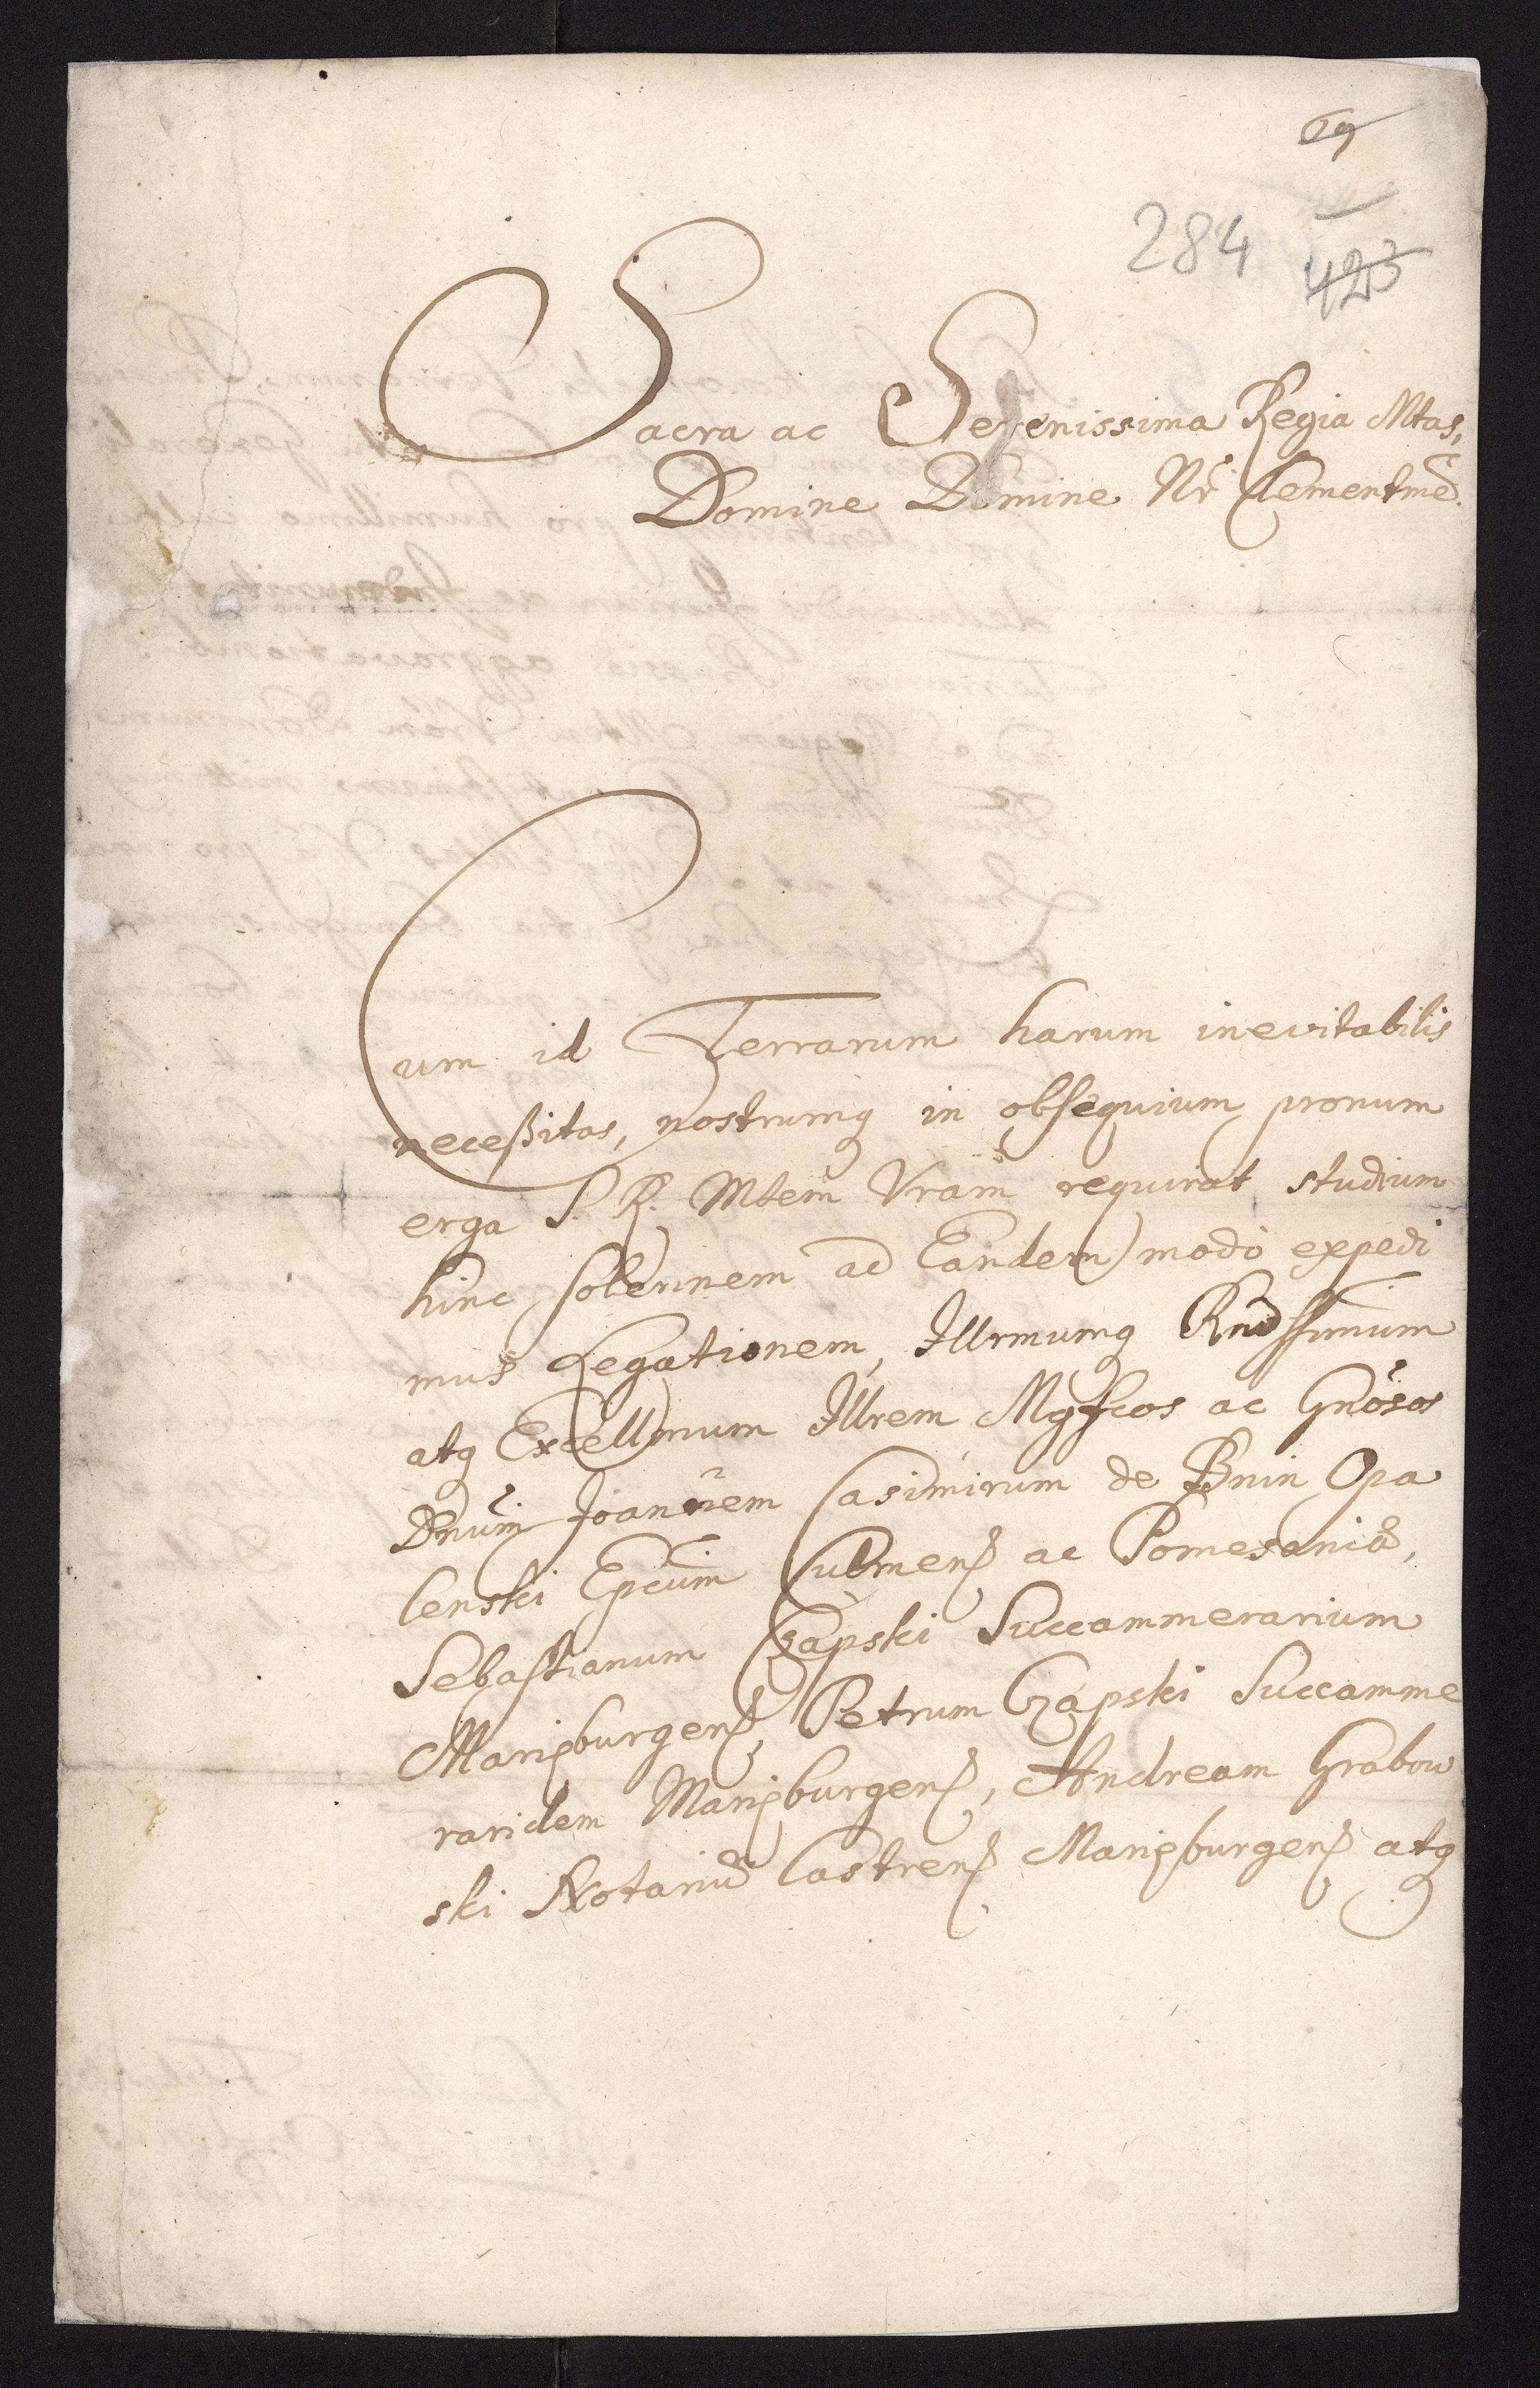 69
284
423
Sacra ac Serenissima Regia Mtas,
Domine Domine Nr Clementme.
Cum id Terrarum harum inevitabilis
neceßitas, nostrumq in obsequium pronum
erga S. R. Mtem Vram requirat studium
hinc solennem ad Eandem modò expedi
mus Legationem, Illrmumq Rndssimum
atq Excellmum Illrem Mgfcos ac Gnosos
Dnum Joannem Casimirum de Bnin Opa
lenski Epcum Culmens ac Pomesaniæ,
Sebastianum Czapski Succammerarium
Marijburgens, Petrum Czapski Succamme
raridem Marijburgens, Andream Grabow
ski Notariu Castrens Marijburgens atq